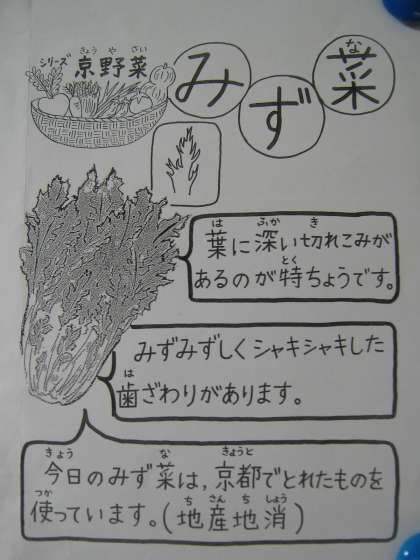 シリーズ 京野菜
きょう や さい
みず菜
な
は ふか き
葉に深い切れこみが
とく
あるのが特ちょうです。
みずみずしくシャキシャキした
は
歯ざわりがあります。
きょう な きょうと
今日のみず菜は,京都でとれたものを
つか ち さん ち しょう
使っています。(地産地消)